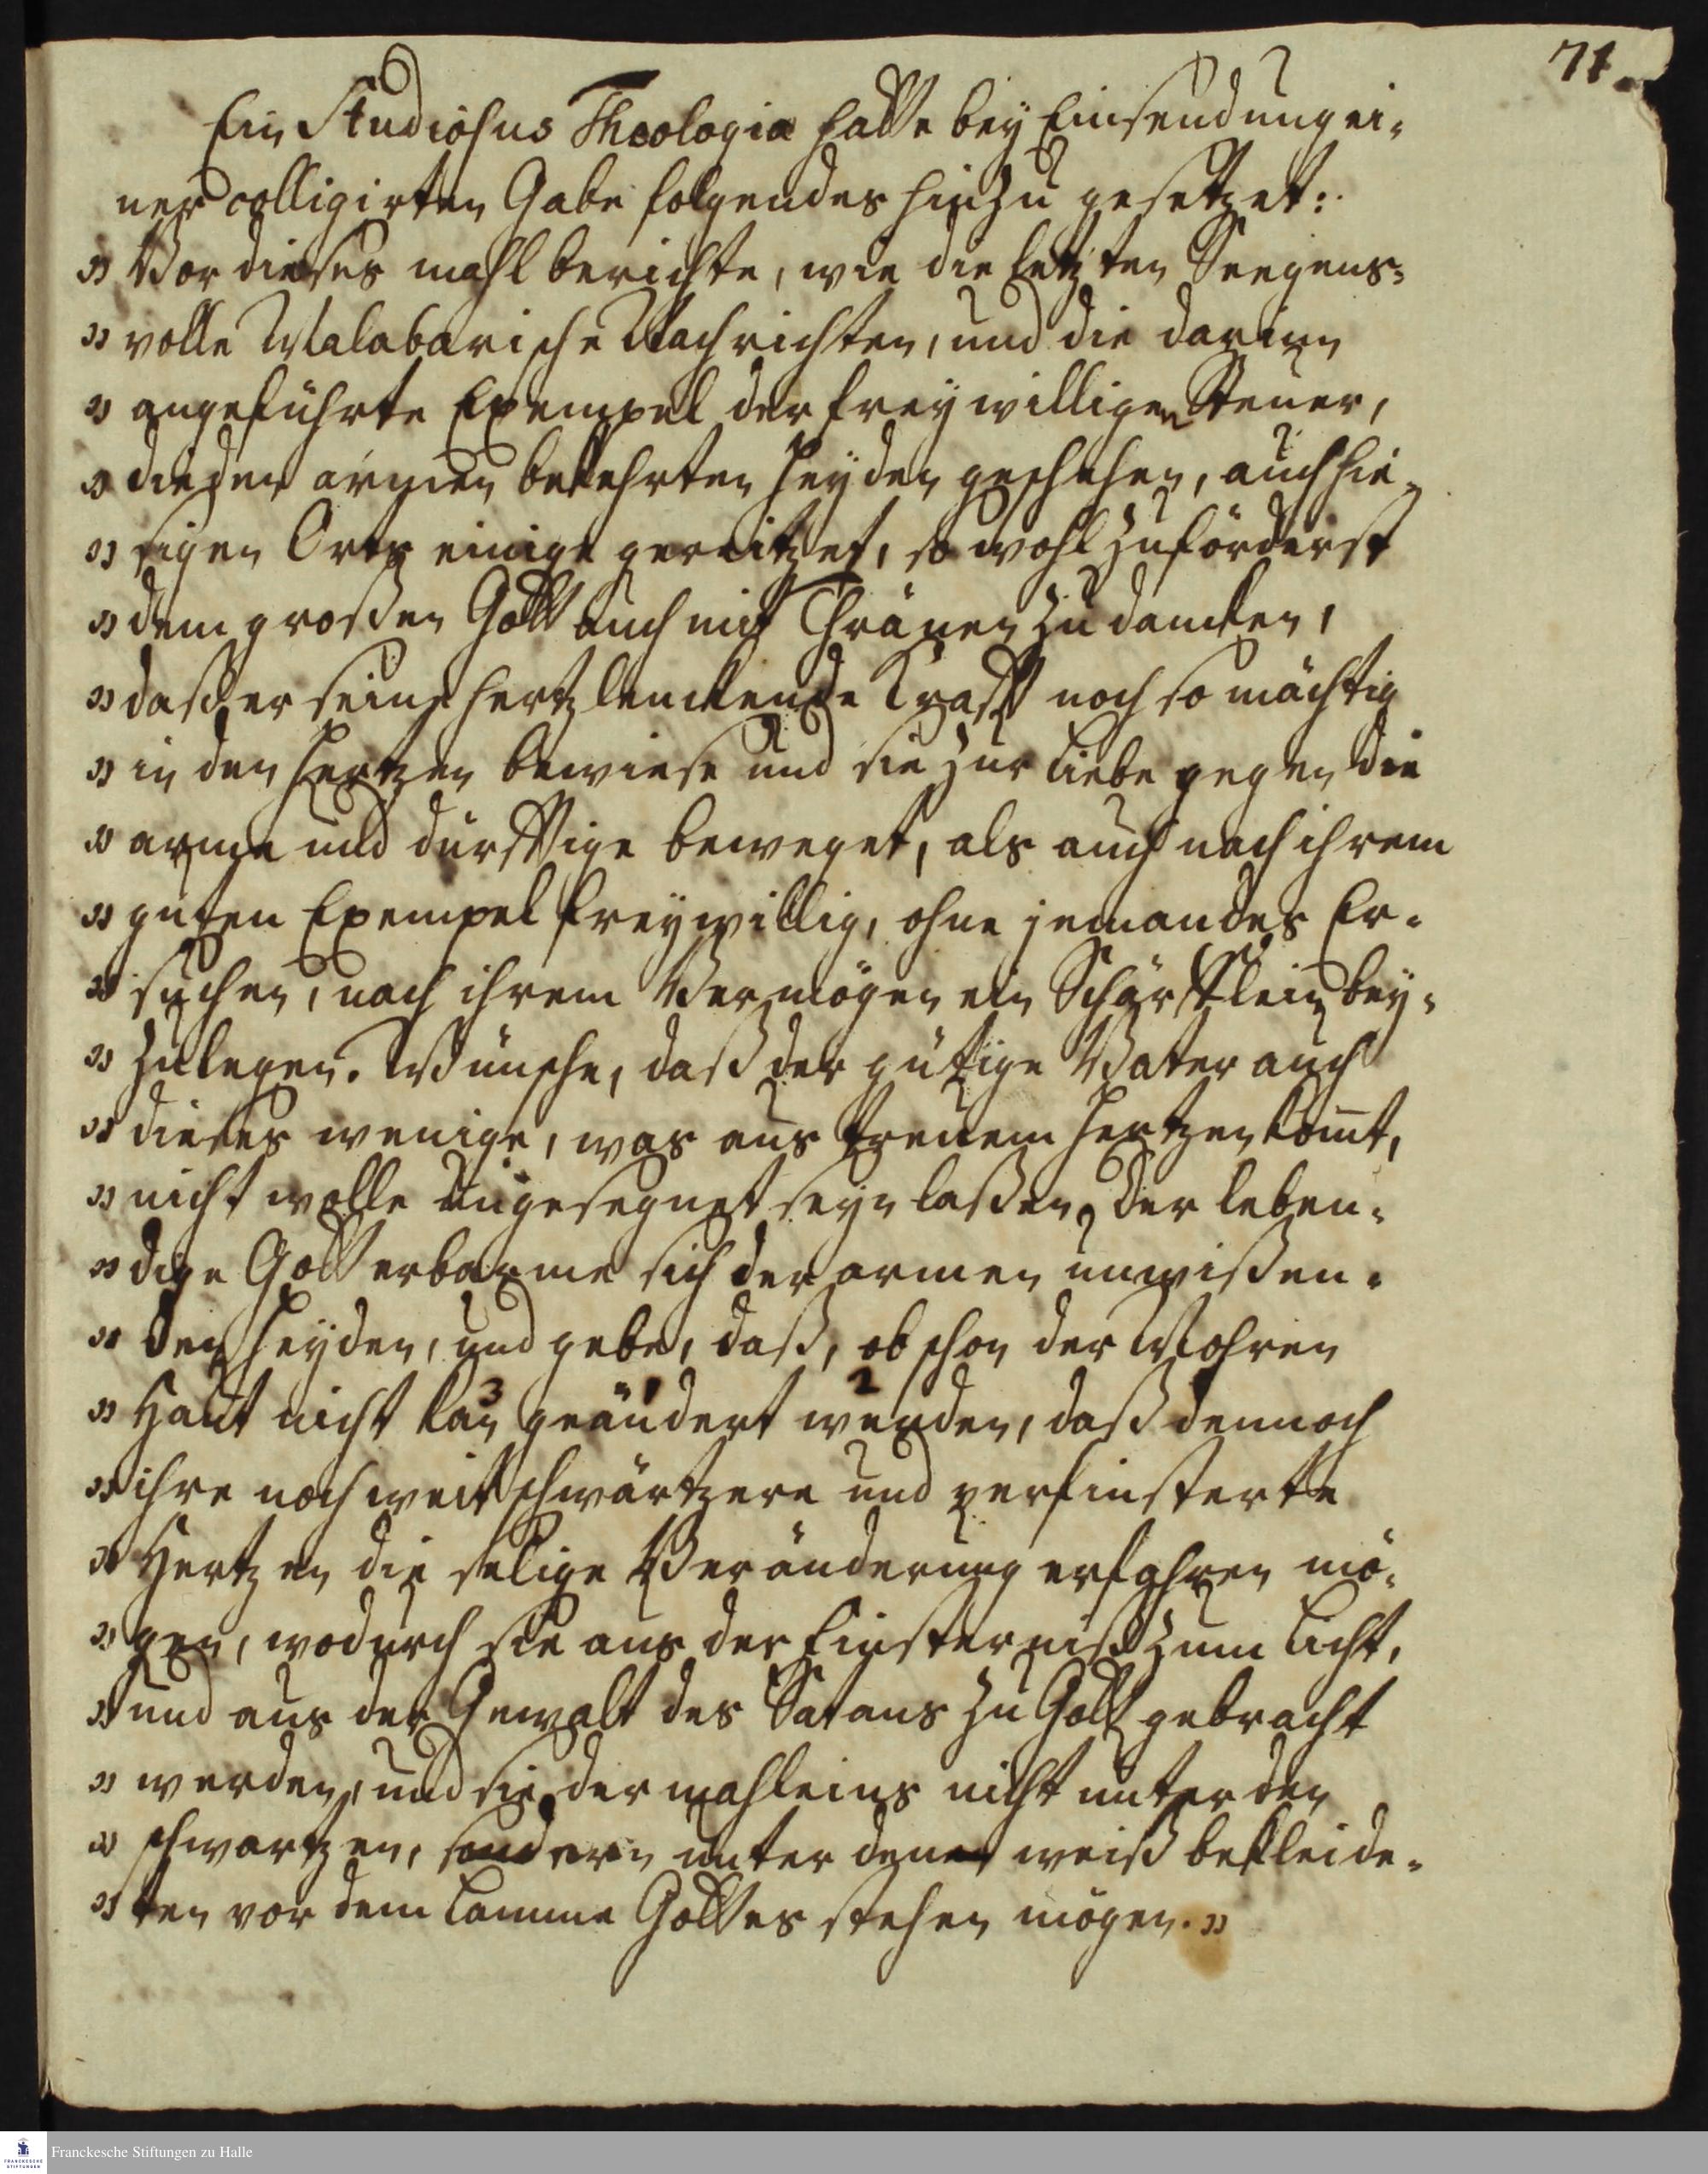 71.
Ein Studiosus Theologiæ hatte bey Einsendung ei-
ner colligirten Gabe folgendes hinzu gesetzet:
" Vor dieses mahl berichte, wie die letzten Seegens-
" volle Malabarische Nachrichten, und die darinn
" angeführte Exempel der freywilligen Steuer,
" die den armen bekehrten Heyden geschehen, auch hie-
" sigen Orts einige gereitzet, so wohl zuförderst
" dem großen Gott auch mit Thränen zu dancken,
" daß er seine hertzlenckende Krafft noch so mächtig
" in den Hertzen bewiese und sie zur Liebe gegen die
" arme und dürfftige beweget, als auch nach ihrem
" guten Exempel freywillig, ohne jemandes Er-
" suchen, nach ihrem Vermögen ein Schärfflein bey-
" zulegen. Wünsche, daß der gütige Vater auch
" dieses wenige, was aus treuem Hertzen kom̄t,
" nicht wolle ungesegnet seyn laßen, der leben-
" dige Gott erbarme sich der armen unwißen-
" den Heyden, und gebe, daß, ob schon der Mohren
" Haut nicht kan geändert werden, daß dennoch
3 1 2
" ihre noch weit schwärtzere und verfinsterte
" Hertzen die selige Veränderung erfahren mö-
" gen, wodurch sie aus der Finsterniß zum Licht,
" und aus der Gewalt des Satans zu Gott gebracht
" werden, und sie dermahleins nicht unter den
" schwartzen, sondern unter denen weiß bekleide-
" ten vor dem Lamme Gottes stehen mögen. "
Franckesche Stiftungen zu Halle
FRANCKESCHE
STIFTUNGEN